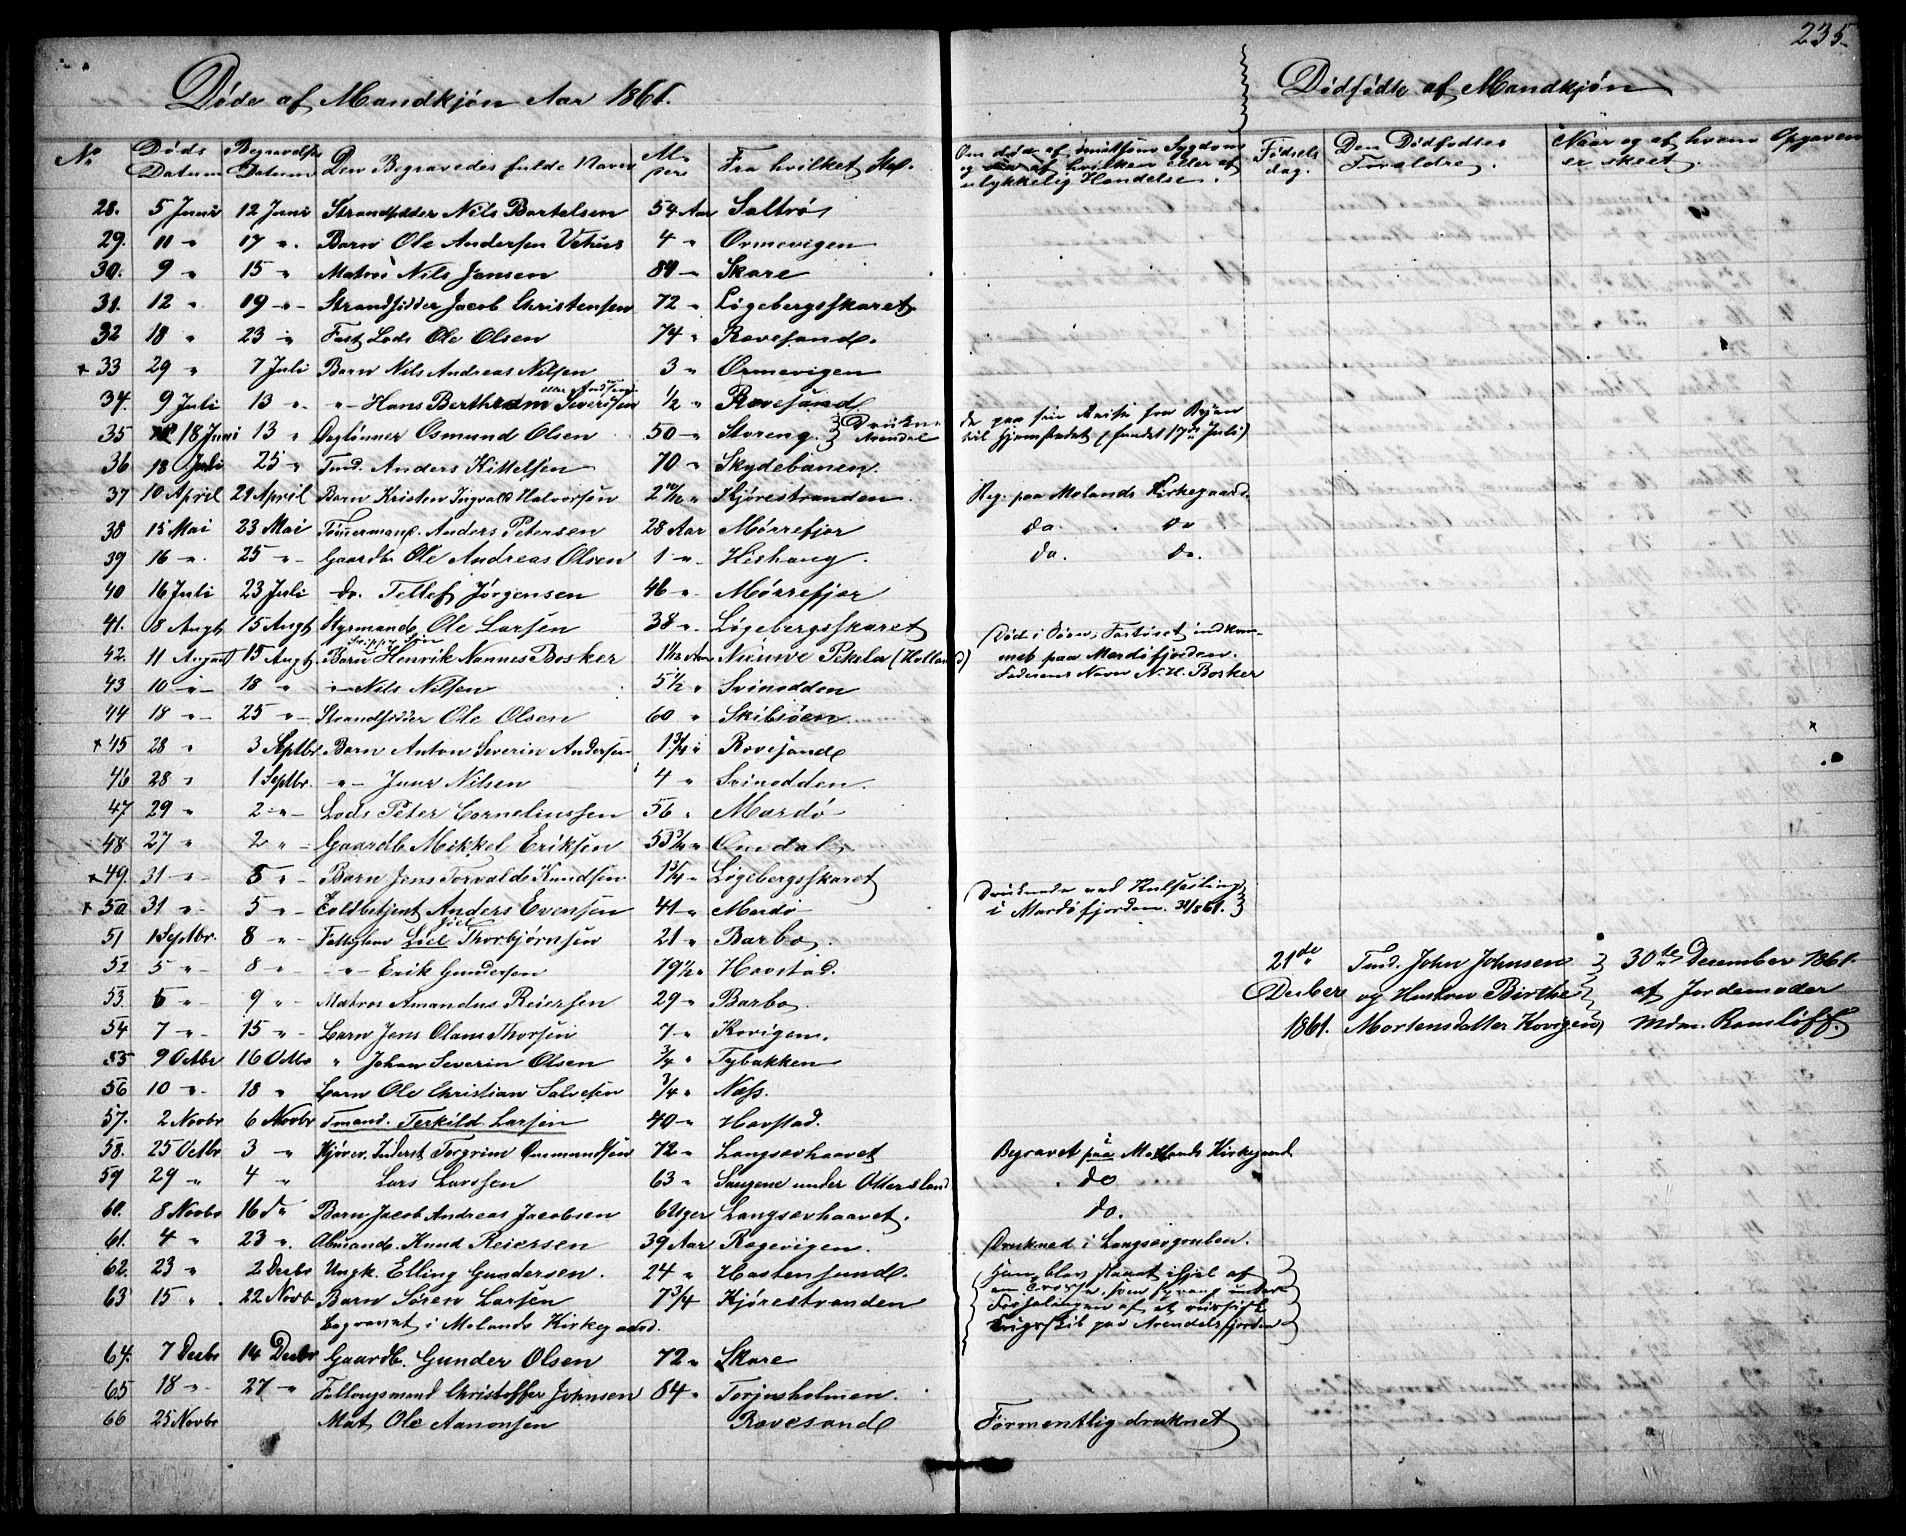 235.
Døde af Mandkjøn Aar 1861.
Dødfødte af Mandkjøn
No
Døds Datum
Begravelses Datum
Den Begravedes fulde Navn
Al-
Fra hvilket Sted.
Om død af smitsom Sygdom
og af hvilken eller af
ulykkelig Hændelse.
Fødsels
dag.
Den Dødfødtes
Forældre.
Naar og af hvem Opgaven
er skeet.
28. 5 Juni 12 Juni Strandsidder Nils Bertelsen 54 Aar Saltrø
29. 11 " 17 " Barn Ole Andersen 4 " Ormevigen
30. 9 " 15 " Matros Nils Jansen 84 " Skare
31. 12 " 19 " Strandsidder Jacob Christensen 72 " Løgebergsskaret
32 18 " 23 " Fast Lods Ole Olsen 74 " Revesand.
+ 33 29 " 7 Juli Barn Nils Andreas Nilsen 3 " Ormevigen
34. 9 Juli 13 " " Hans Berthram Severinsen 1/2 " Revesand
35 18 Juni 13 " Osmund Olsen 50 " Storeng. Arendal
de paa sin Reise fra Byen
til Hjemstedet (fundet 17de Juli)
36 18 Juli 25 " Tmd. Anders Kittelsen 70 " Skydebanen.
37 10 April 21 April Barn Kristen Ingvald Halvorsen 2 " Kjørestranden. Beg. paa Molands Kirkegaard.
38 15 Mai 23 Mai Tømmermand. Anders Petersen 28 Aar Mørrefjær do. do
39 16 " 25 " Gaardb. Ole Andreas Olsen 1 " Hishaug. do. do.
40 16 Juli 23 Juli do. Tellef Jørgensen 46 " Mørrefjær
41. 8 Augt 15 Augt Styrmand Ole Larsen 38 " Løgebergsskaret
42. 11 August 15 Augt. Barn Henrik Nannes Bosker 1 1/12 Aar Nieuwe Pekela (Holland)
Død i Søen, Fartøiet indkom-
met paa Merdøfjorden.
Faderens Navn N. H. Bosker
43 10 " 18 " " Nils Nilsen 5 1/2 " Svinodden
44 18 " 25 " Strandsidder Ole Olsen 60 " Skibsøen
+ 45 28 " 3 Septbr. Barn Anton Severin Andersen 1 3/4 " Revesand
46 28 " 1 Septbr. " Nilsen 4 " Svinodden.
47 29 " 2 " Lods Peter Corneliussen 56 " Mærdø
48 27 " 2 " Gaardb. Mikkel Eriksen 53 3/4 "
+ 49. 31 " 8 " Barn Jens Torvald Knudsen 1 3/4 " Løgebergsskaret
+ 50. 31 " 5 " Toldbetjent Anders Evensen 41 " Merdø
Druknede ved Kulseiling
i Mærdøfjorden. 31/8 61.
51 1 Septbr. 8 " Fattiglem Thorbjørnsen 21 " Barbo
52 5 " 8 " " Erik Gundersen 79 1/2 " Havstad.
53. 5 " 9 " Matros Amandus Reiersen 29 " Barbo
54 7 " 15 " Barn Jens Olaus Thorsen 7 " Kovigen.
21de Decbers 1861.
Tmd. John Johnsen
og Hustru Birthe
Mortensdatter Kovigen
30te December 1861
af Jordemoder
Mdm. Romsloff.
55 9 Octbr 16 Octbr " Johan Severin Olsen 3/4 " Tybakken
56 10 " 18 " Barn Ole Christian Salvesen 3/4 " Næss.
57. 2 Novbr 6 Novbr Tmand. Terkild Larsen 40 " Havstad.
58. 25 Octbr 3 " Torgrim Gusmundsen 72 " Langsævhaavet Begravet i Molands Kirkegaard
59 29 " 4 " Lars Larssen 63 " Saugene under Ottersland do
60. 8 Novbr 16 d" Barn Jacob Andreas Jacobsen 6 Uger Langsævhaavet. do.
61. 4 " 23 " Knud Reiersen 39 Aar Røgevigen. Drukned i Langsævgruben.
62. 23 " 2 Decbr Ungk. Elling Gundersen. 24 " Hastensund.
Han blev slaaet ihjel af
en Trosse, som sprang under
Forhalingen af et russisk
Krigsskib paa Arendalsfjorden
63 15 " 22 Novb Barn Søren Larsen 7 3/4 Kjørestranden
begravet i Molands Kirkegaard.
64. 7 Decbr 14 Decbr Gaardb. Gunder Olsen 72 " Skare
65 18 " 27 " Fattigmand Christoffer Johnsen 84 " Torjusholmen.
66 25 Novbr Mat. Ole Aanonsen Revesand Formentlig druknet